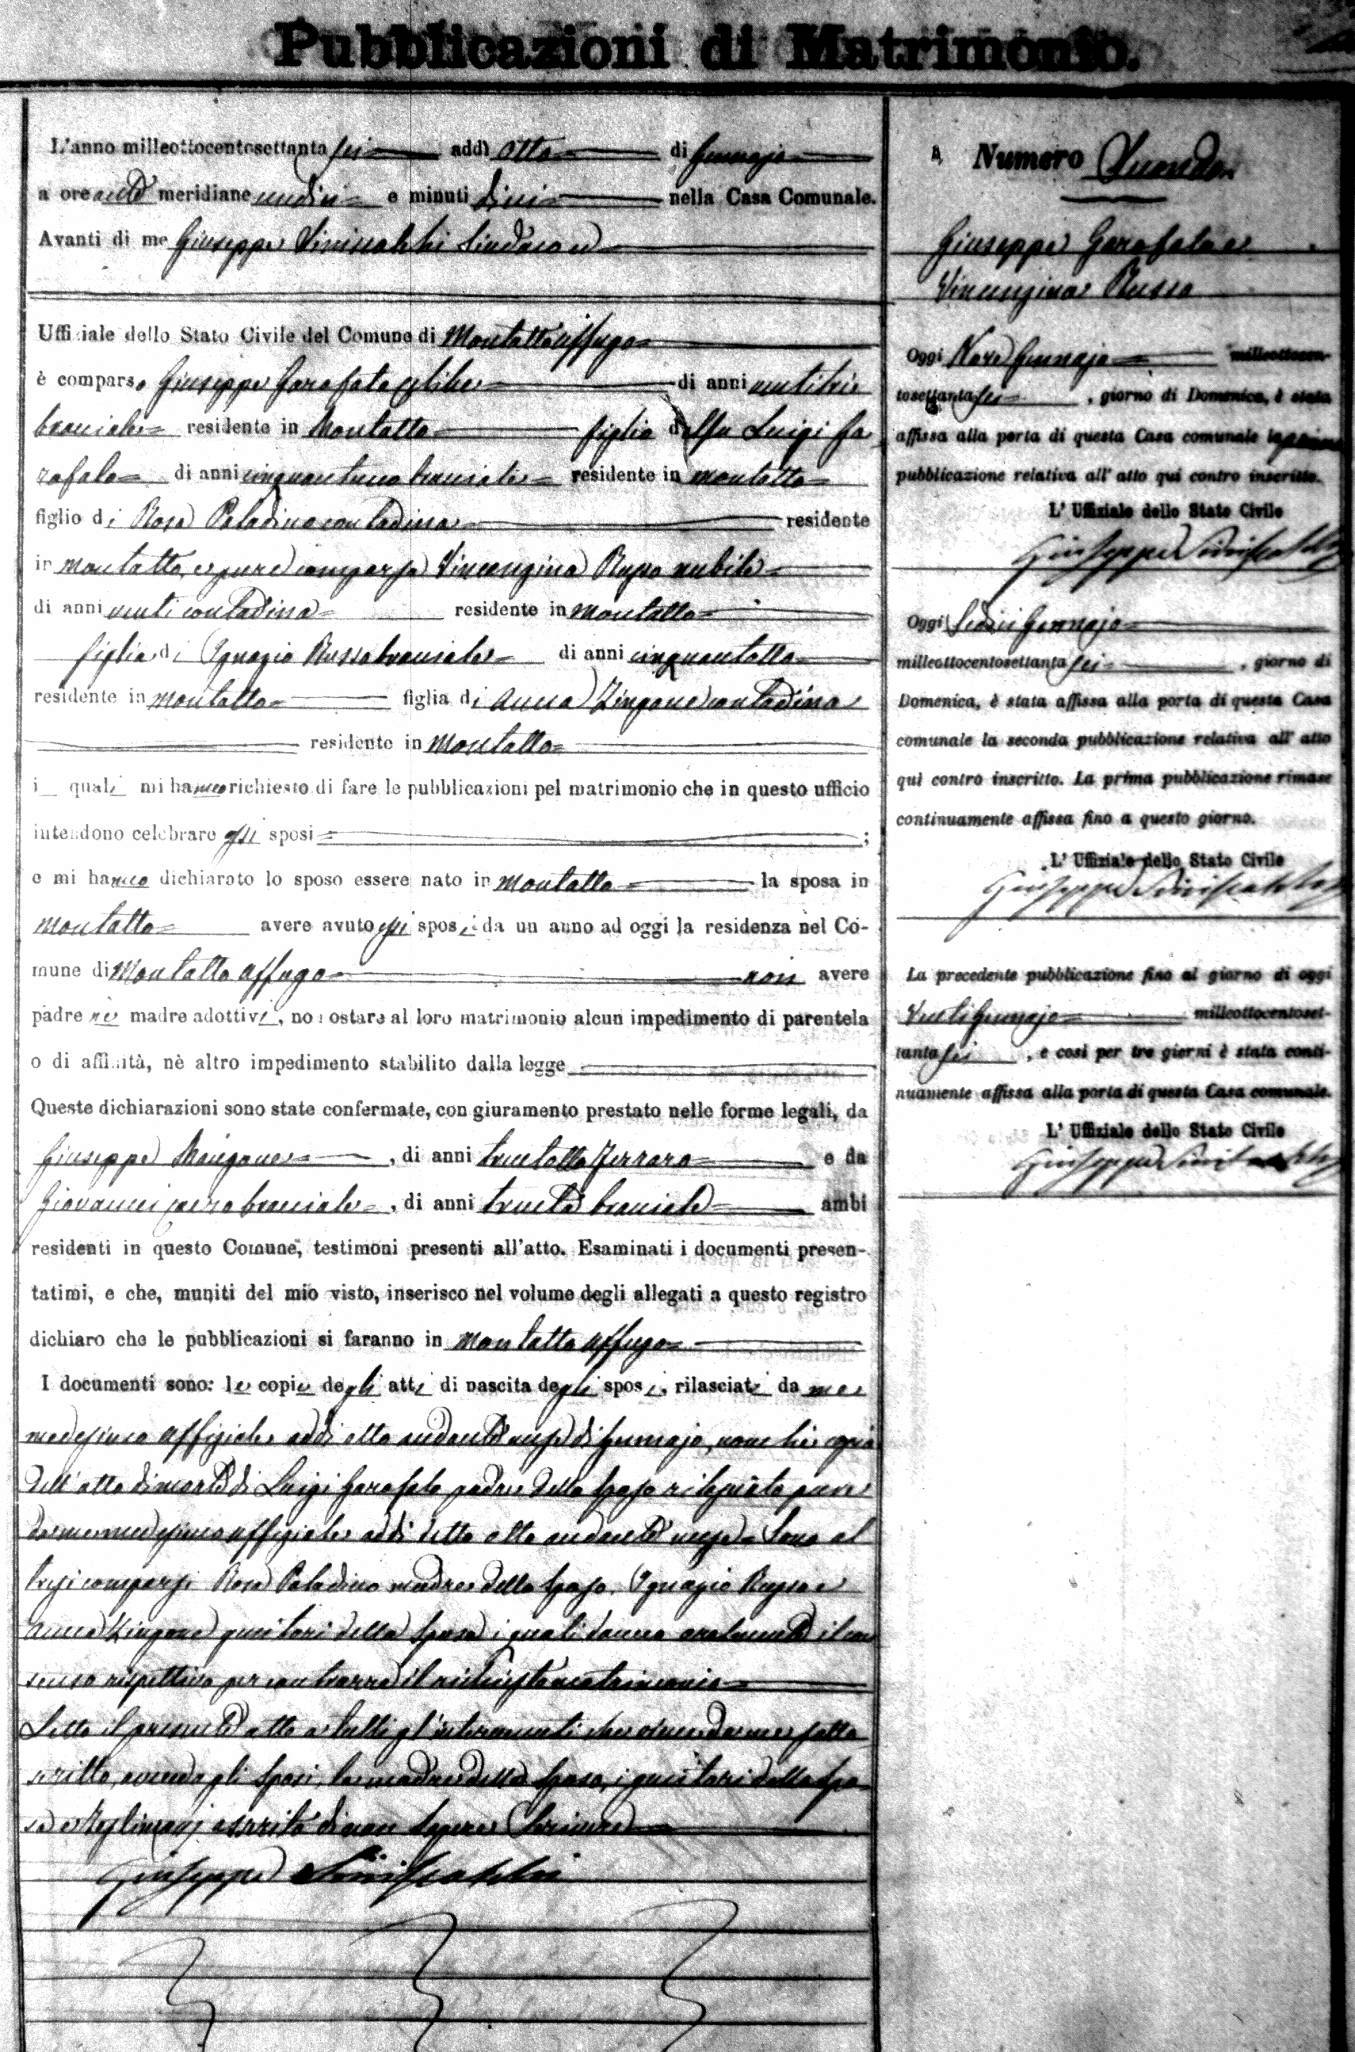 Pubblicazioni di Matrimonio.
L'anno milleottocentosettanta sei addì otto di Gennajo
a ore anti meridiane undici e minuti dieci nella Casa Comunale.
Avanti di me Giuseppe Siniscalchi Sindaco ed
Uffiziale dello Stato Civile del Comune di Montalto Uffugo
è comparso Giuseppe Garofalo celibe di anni ventitrè
bracciale residente in Montalto figlio del fu Luigi Ga
rofalo di anni cinquantuno bracciale residente in Montalto
figlio di Rosa Paladino contadina residente
in Montalto, e pure comparsa Vincenzina Russo nubile
di anni venti contadina residente in Montalto
figlia di Ignazio Russo bracciale di anni cinquantotto
residente in Montalto figlia di Anna Zingone contadina
residente in Montalto
i quali mi hanno richiesto di fare le pubblicazioni pel matrimonio che in questo ufficio
intendono celebrare essi sposi ;
e mi hanno dichiarato lo sposo essere nato in Montalto la sposa in
Montalto avere avuto essi sposi da un anno ad oggi la residenza nel Co-
mune di Montalto Uffugo non avere
padre nè madre adottivi, non ostare al loro matrimonio alcun impedimento di parentela
o di affinità, nè altro impedimento stabilito dalla legge
Queste dichiarazioni sono state confermate, con giuramento prestato nelle forme legali, da
Giuseppe Mangone, di anni trentotto Ferraro e da
Giovanni bracciale, di anni trenta bracciale ambi
residenti in questo Comune, testimoni presenti all'atto. Esaminati i documenti presen-
tatimi, e che, muniti del mio visto, inserisco nel volume degli allegati a questo registro
dichiaro che le pubblicazioni si faranno in Montalto Uffugo
I documenti sono: le copie degli atti di nascita degli sposi, rilasciate da me
medesimo Uffiziale addì otto andante mese di Gennajo, nonchè copia
dell'atto di morte di Luigi Garofalo padre dello sposo rilasciata pure
da me medesimo uffiziale addì detto otto andante mese. Sono al
tresì comparsi Rosa Paladino madre dello sposo, Ignazio Russo e
Anna Zingone genitori della sposa i quali danno oralmente il con
senso rispettivo per contrarre il richiesto matrimonio
Letto il presente atto a tutti gl'intervenuti che viene da me sotto
scritto, avendo gli sposi, la madre dello sposo, i genitori della spo
sa e testimonj asserito di non sapere scrivere
Giuseppe Siniscalchi
Numero Secondo
Giuseppe Garofalo e
Vincenzina Russo
Oggi Nove Gennajo milleottocen-
tosettanta sei, giorno di Domenica, è stata
affissa alla porta di questa Casa comunale la prima
pubblicazione relativa all'atto qui contro inscritto.
L'Uffiziale dello Stato Civile
Giuseppe Siniscalchi
Oggi Sedici Gennajo
milleottocentosettanta sei, giorno di
Domenica, è stata affissa alla porta di questa Casa
comunale la seconda pubblicazione relativa all'atto
quì contro inscritto. La prima pubblicazione rimase
continuamente affissa fino a questo giorno.
L'Uffiziale dello Stato Civile
Giuseppe Siniscalchi
La precedente pubblicazione fino al giorno di oggi
Venti Gennajo milleottocentoset-
tanta sei, e così per tre giorni è stata conti-
nuamente affissa alla porta di questa Casa comunale.
L'Uffiziale dello Stato Civile
Giuseppe Siniscalchi